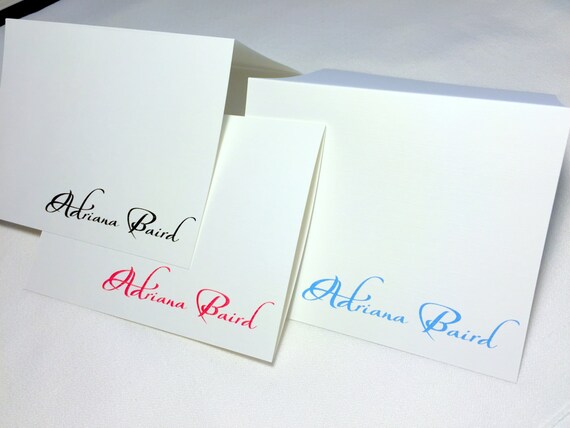 Adriana Baird
Adriana Baird
Adriana Baird